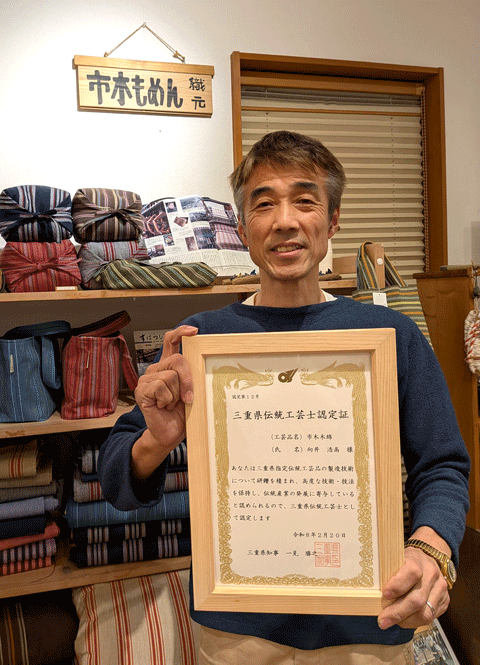 市木もめん
織元
認定第12号
三重県伝統工芸士認定証
(工芸品名) 市木木綿
(氏 名) 向井 浩高 様
あなたは三重県指定伝統工芸品の製造技術
について研鑽を積まれ、高度な技術・技法
を保持し、伝統産業の発展に寄与している
と認められるので、三重県伝統工芸士とし
て認定します
令和8年2月20日
三重県知事 一見 勝之